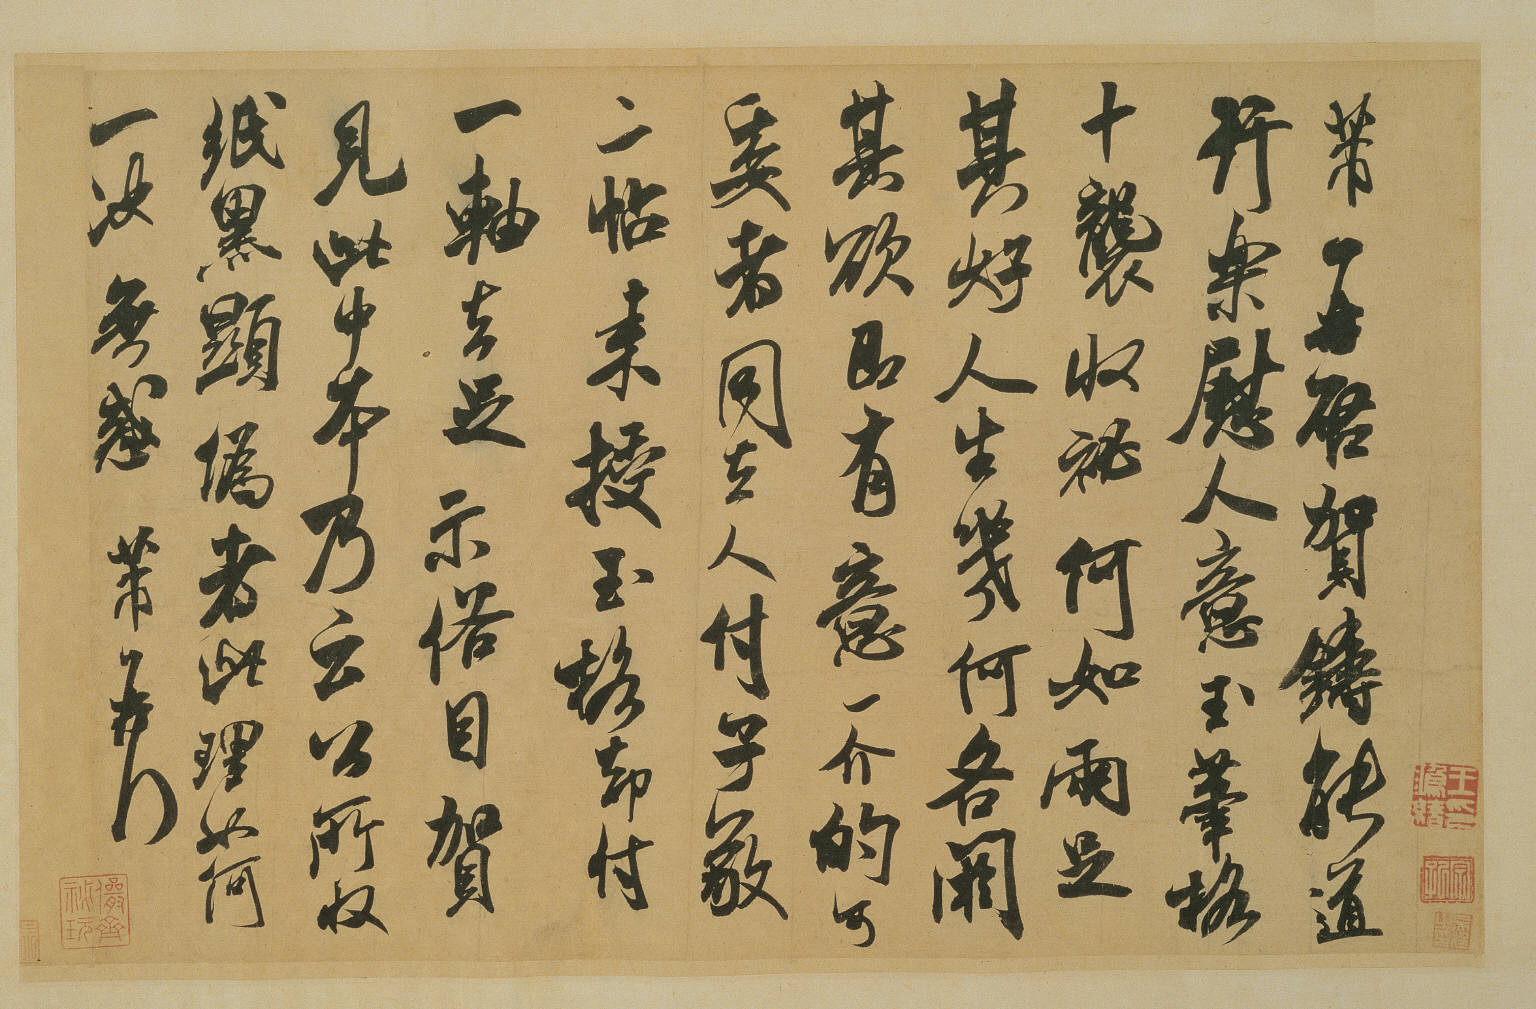 芾頓首啓賀鑄能道
行樂慰人意玉筆格
十襲收祕何如兩足
其好人生幾何各闕
其欲即有意一介的可
委者同去人付子敬
二帖來授玉格却付
一軸去足示俗目賀
見此中本乃云公所收
紙黑顯偽者此理如何
一決無惑芾頓首
儼齋秘玩